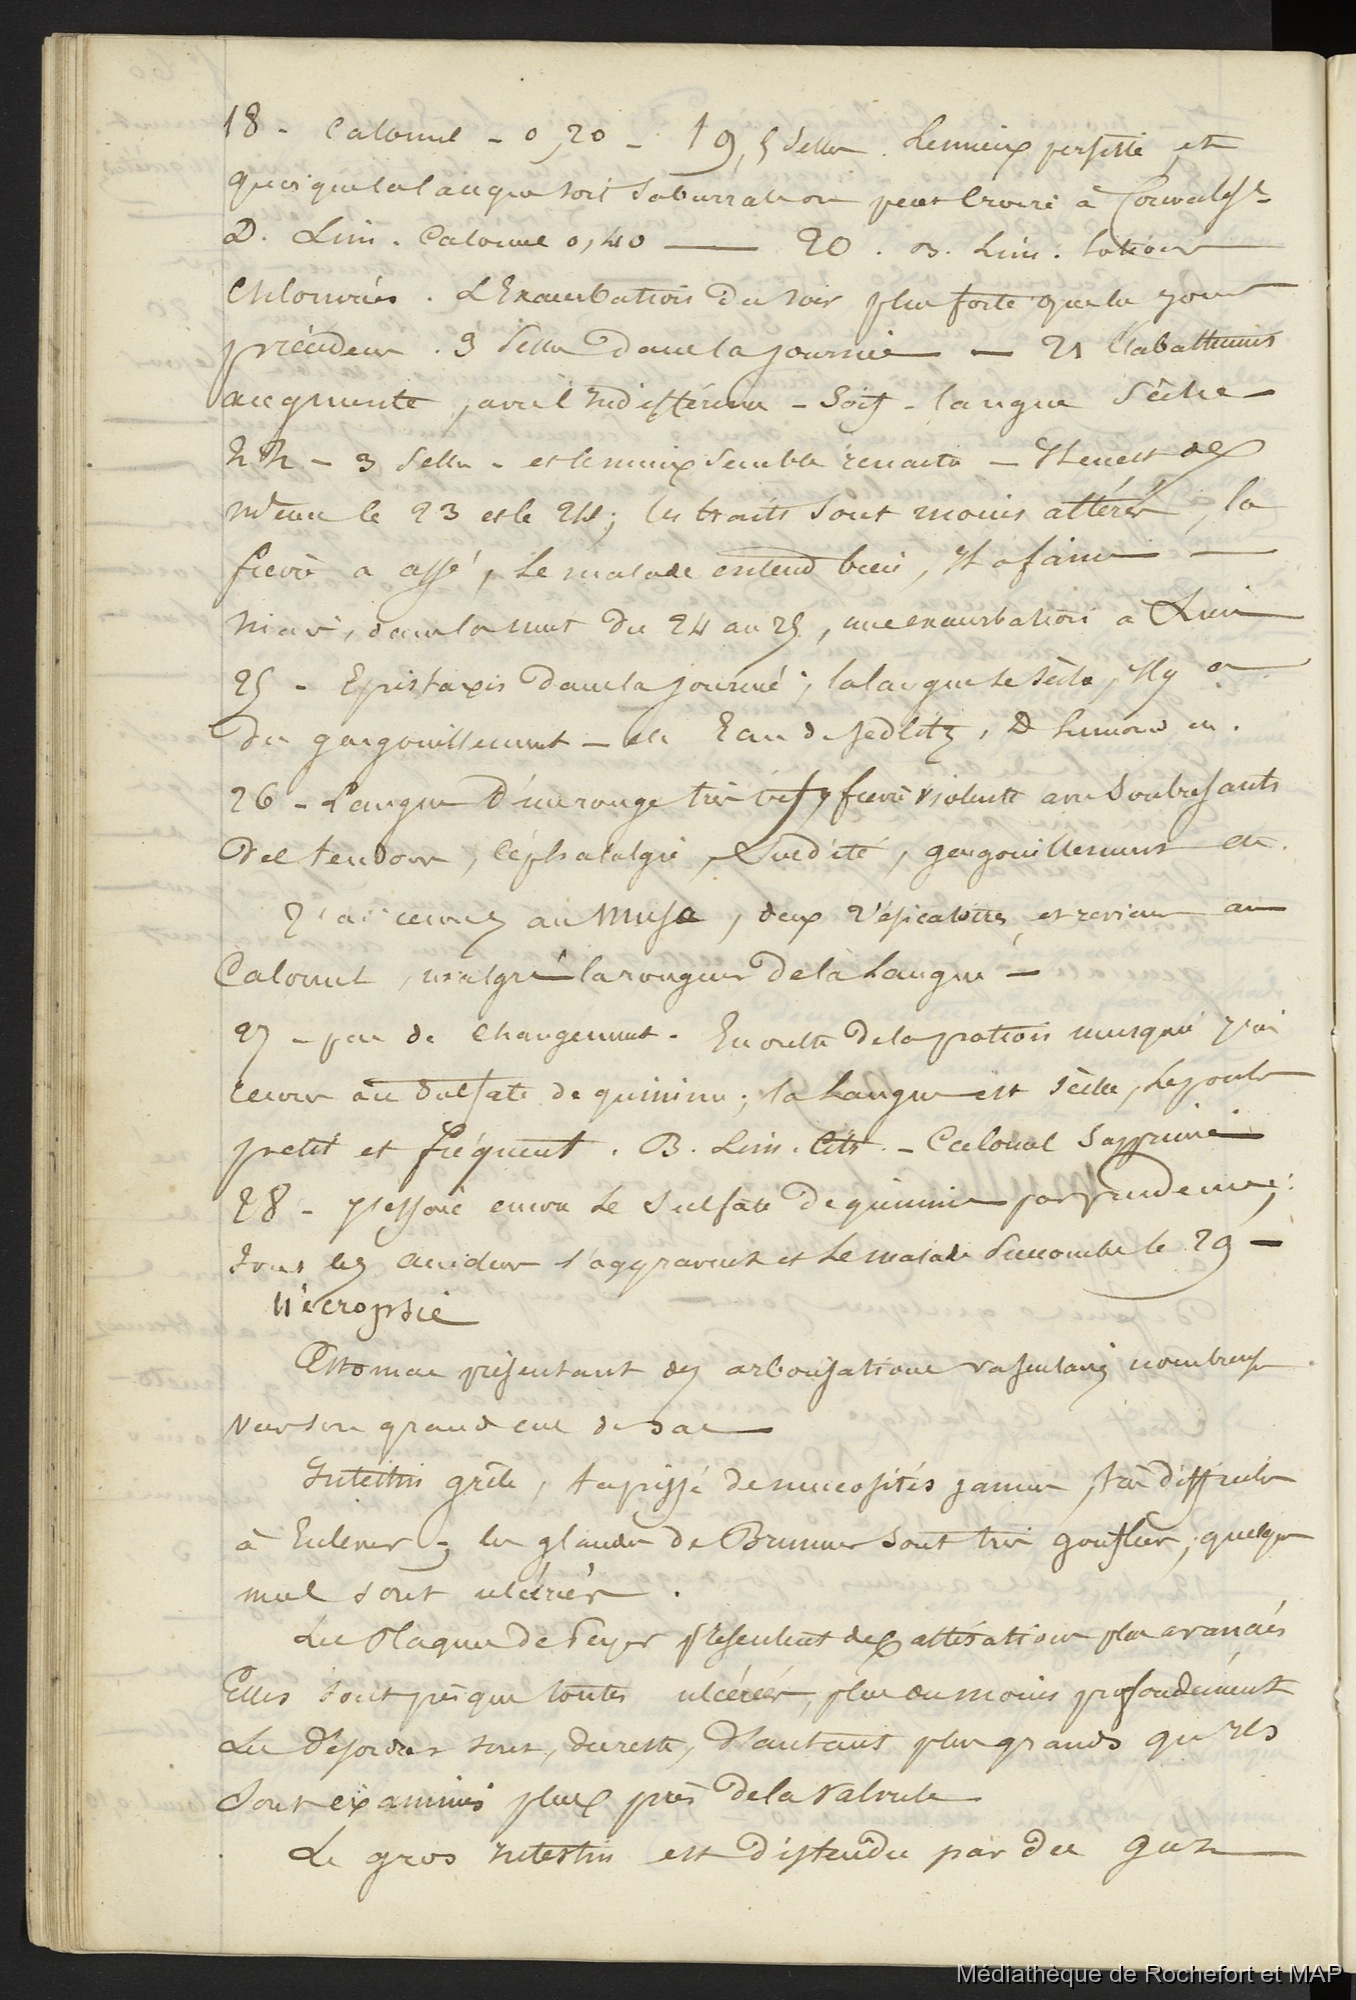 18 - Calomel - 0,20 - 19, 5 Selles. Le mieux persiste et
quoique la langue soit saburrale on peut croire à Convalesce
D. Lim. Calomel 0,40 — 20. B. Lim: lotions
Chlorurées. L'Exacerbation du soir plus forte que les jours
précédens. 3 Selles dans la journée — 21 L'abattement
augmente, avec l'indifférence - Soif - langue Sèche -
22 - 3 Selles - et le mieux semble renaitre - Il en est de
même le 23 et le 24; les traits sont moins altérés, la
fievre a cessé, Le malade entend bien, Il a faim —
Mais, dans la nuit du 24 au 25, une exacerbation a Lieu
25 - Epistaxis dans la journée, la langue se sèche, Il y a
du gargouillement - Eau de Sedlitz, D Limonad
26 - Langue d'une rouge très vif, fievre violente avec Soubresauts
des tendons, Céphalalgie, Surdité, gargouillemens etc.
J'ai recours au Musc, deux Vésicatoires et reviens au
Calomel, malgré la rougeur de la Langue -
27 - peu de Changement. En outre de la potion musquée j'ai
recours au Sulfate de quinine; la Langue est Sèche, le pouls
petit et fréquent. B. Lim. Citr. - Calomel Supprimé
28 - J'essaie encore le Sulfate de quinine par prudence;
Tous les accidens s'aggravent et le malade Succombe le 29 -
Nécropsie
Estomac présentant des arborisations vasculaires nombreuses
vers son grand cul de sac
Intestin grèle, tapissé de mucosités jaunes, très difficiles
à Enlever; les glandes de Brunner sont très gonflées, quelques
unes sont ulcérées.
Les Plaques de Peyer présentent des altérations plus avancées
Elles sont presque toutes ulcérées, plus ou moins profondément
Les désordres sont, du reste, d'autant plus grands qu'ils
Sont examinés plus près de la valvule
Le gros Intestin est distendu par des gaz
Médiathèque de Rochefort et MAP